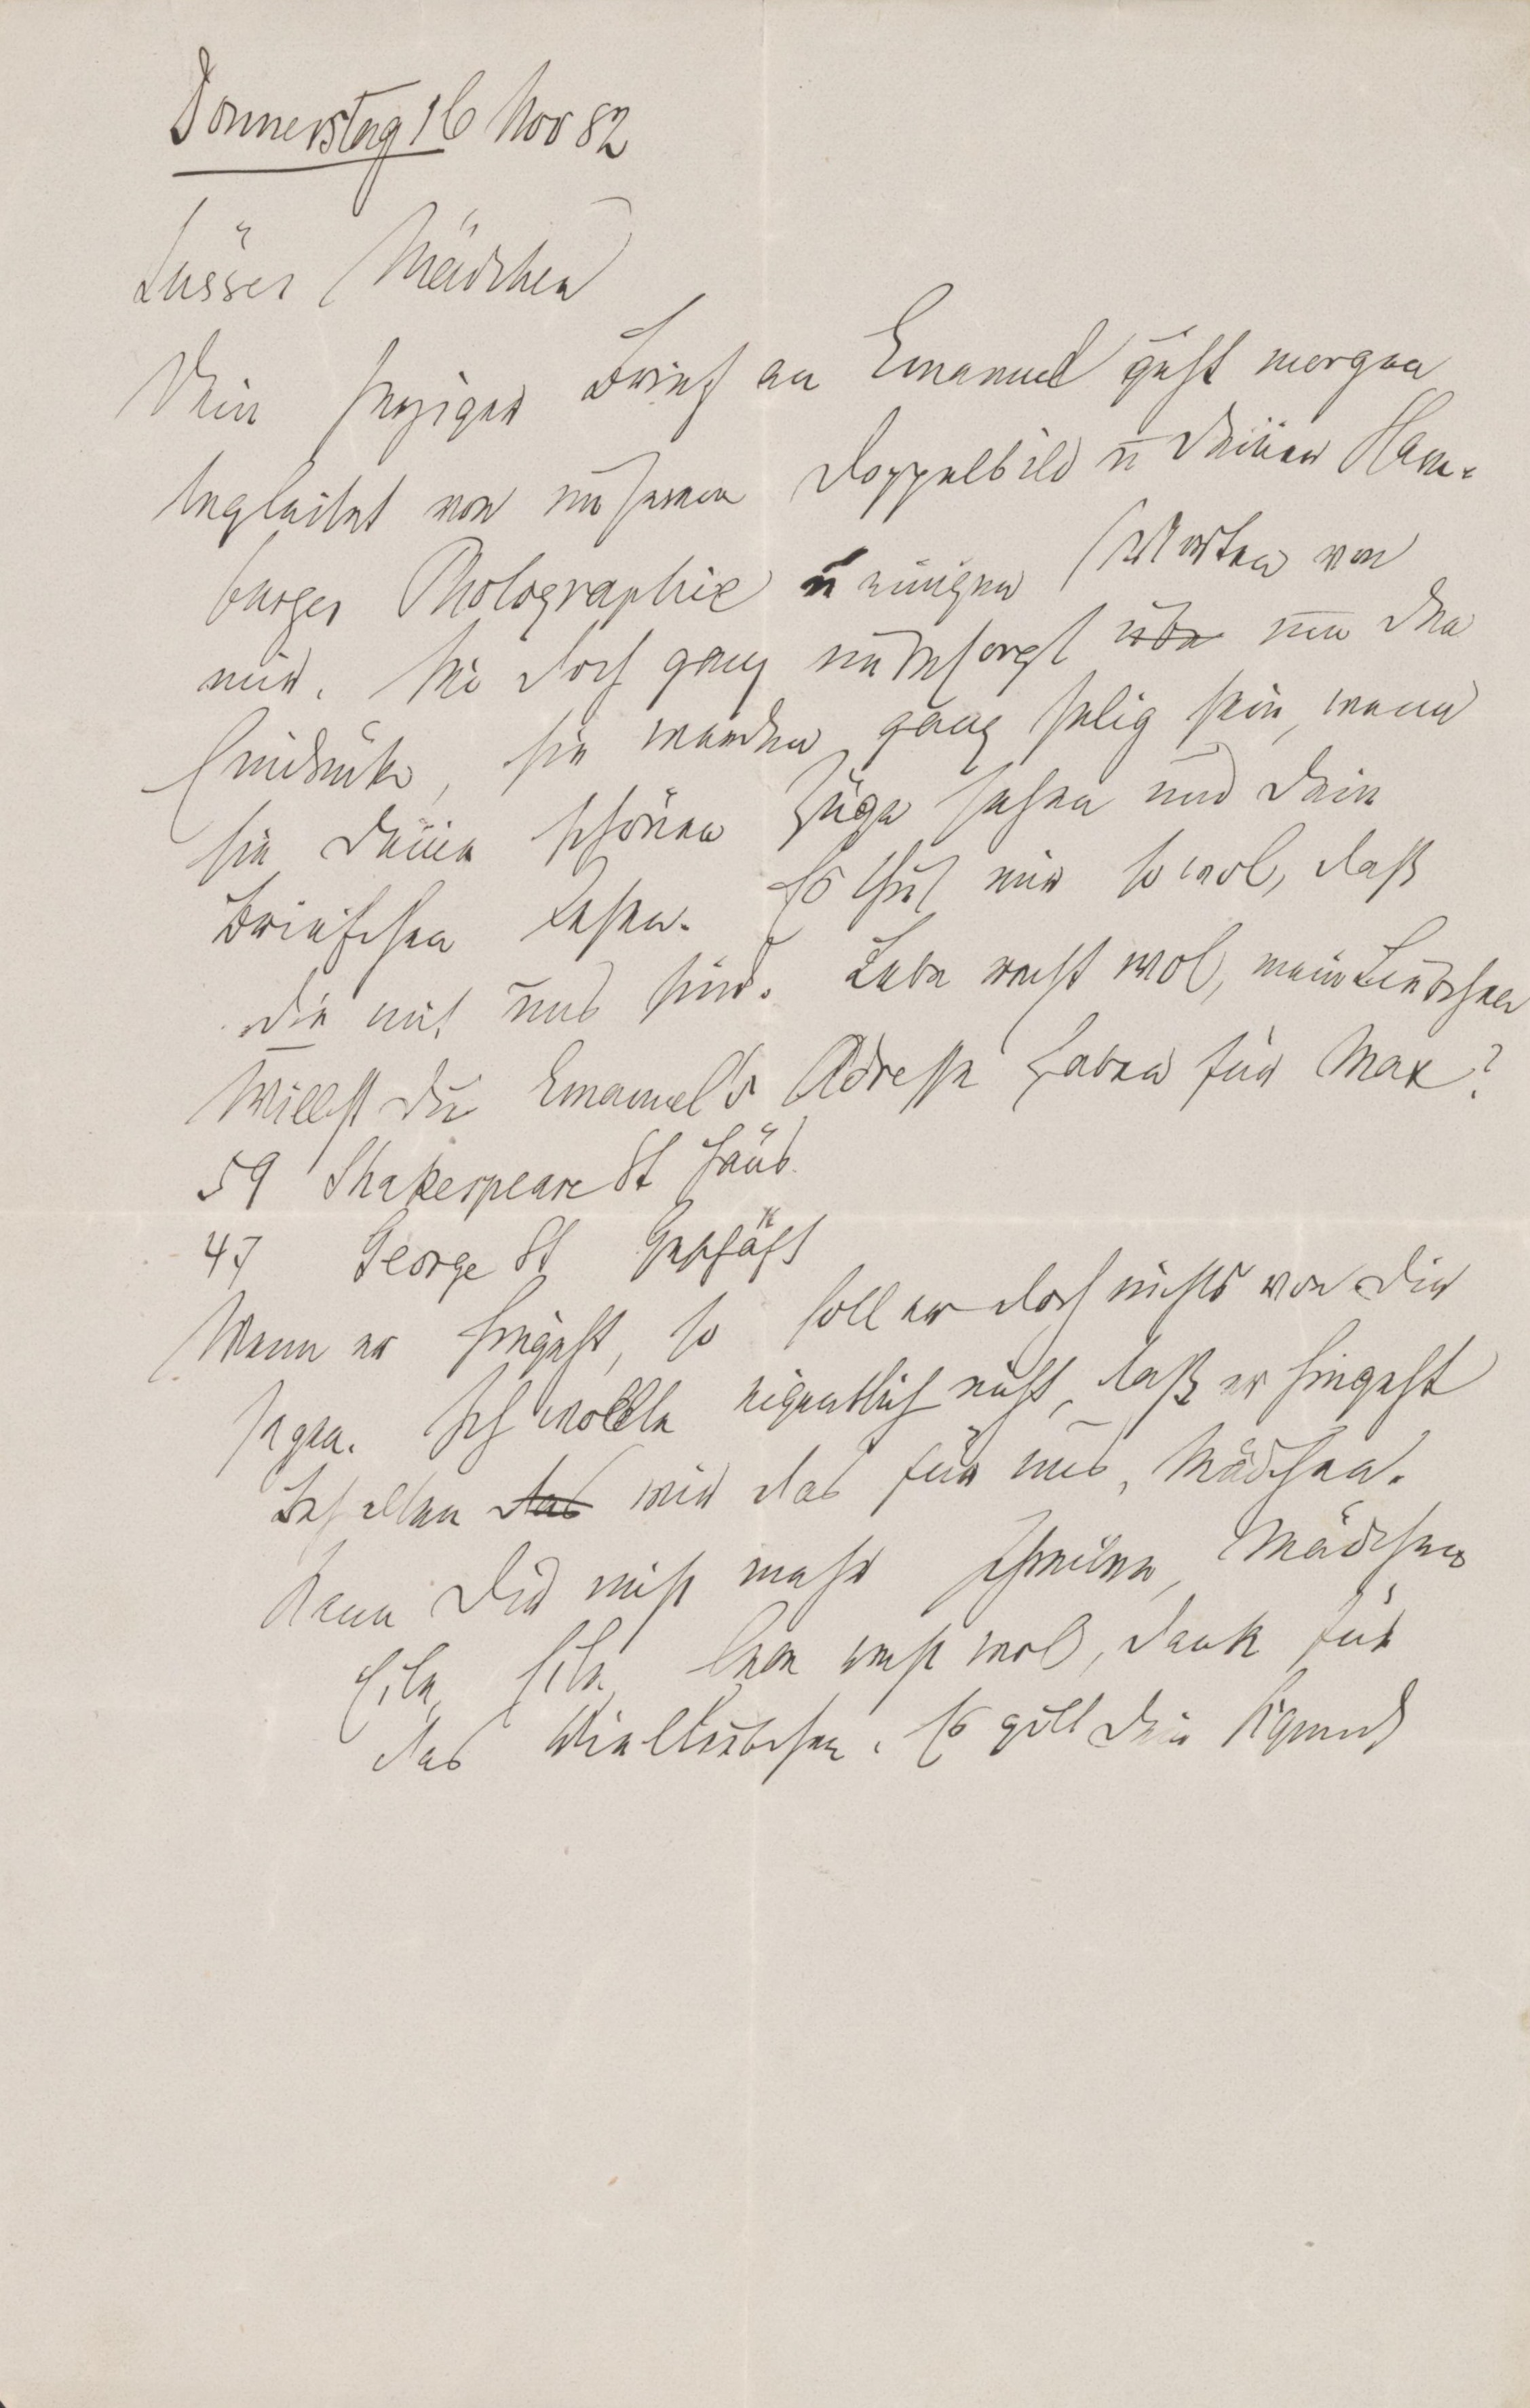 Donnerstag 16 Nov 82
Süsses Mädchen
Dein herziger Brief an Emanuel geht morgen
begleitet von unserem Doppelbild u Deiner Ham-
burger Photographie u einigen Worten von
mir. Sei doch ganz unbesorgt übe um den
Eindruck, sie werden ganz selig sein, wenn
sie Deine schönen Züge sehen und Dein
Briefchen lesen. Es thut mir so wol, daß
die mit uns sind. Lebe recht wol, mein Liebchen
Willst Du Emanuel's Adresse haben für Max?
59 Shakespeare St Haus
47 George St Geschäft
Wenn er hingeht, so soll er doch nichts von Dir
sagen. Ich wollte eigentlich nicht, daß er hingeht
Behalten das wir das für uns, Mädchen.
Kann Dir nicht mehr schreiben, Mädchen
Eile, Eile, lebe recht wol, Dank für
das Es grüßt Dein Sigmund